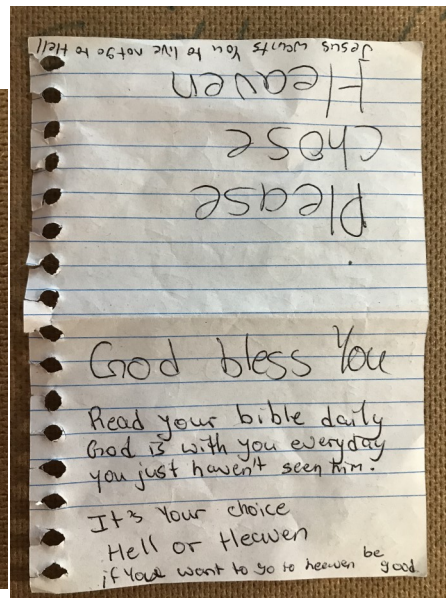 Please
chose
Heaven
Jesus wants You to live not go to Hell
God bless You
Read your bible daily
God is with you everyday
you just haven't seen him.
It's Your choice
Hell or Heaven
if you want to go to heaven be good